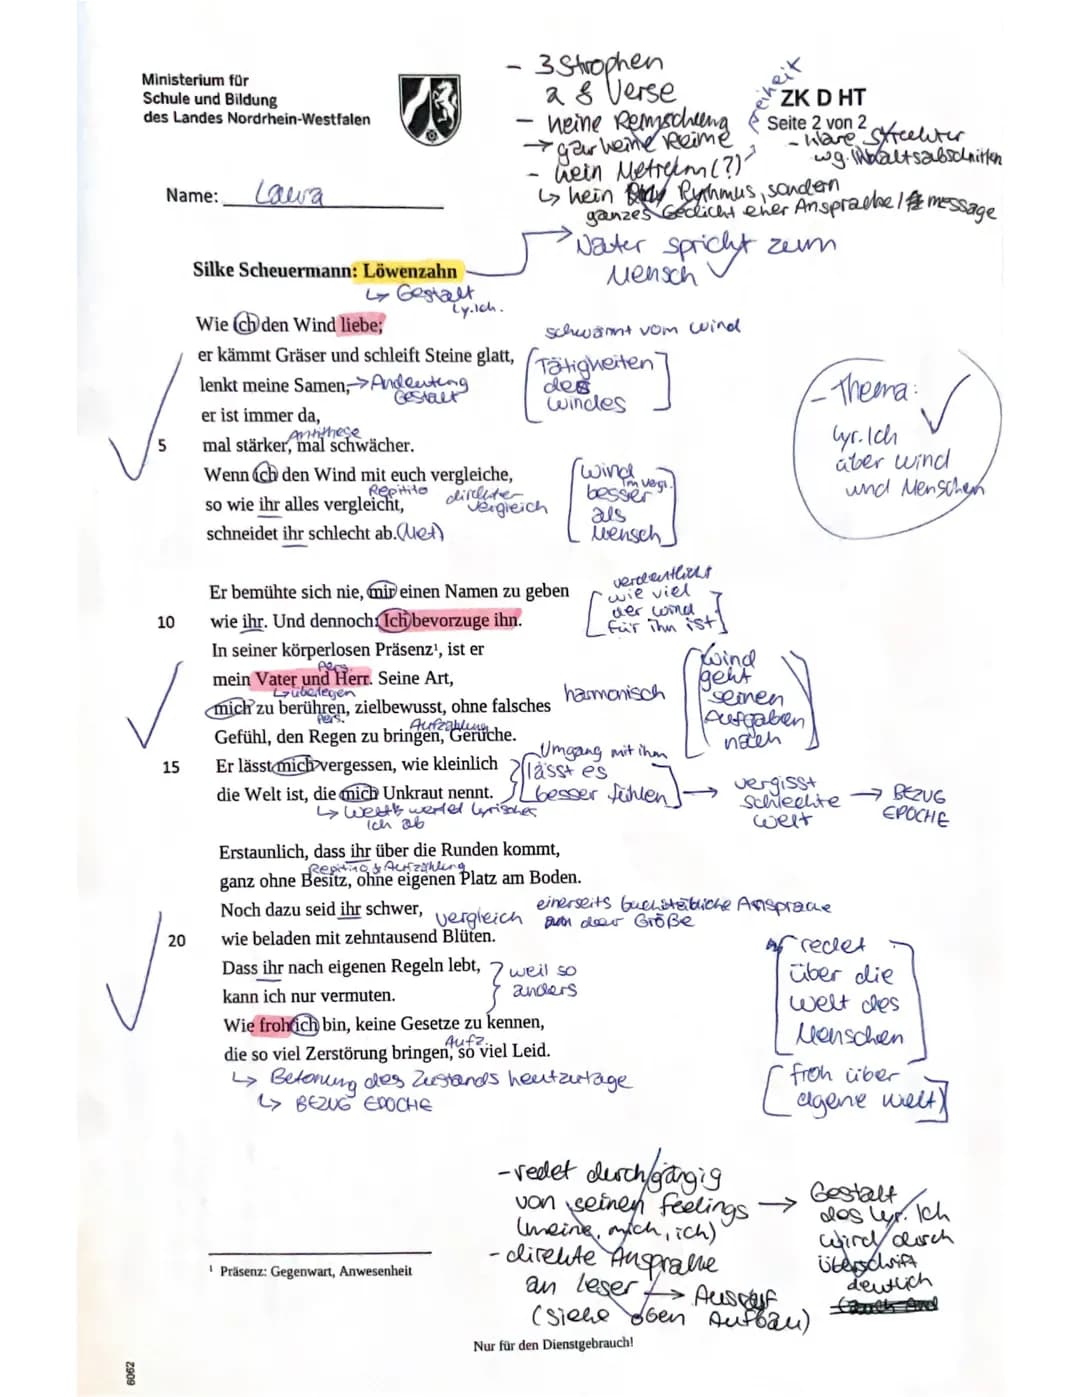 Ministerium für
Schule und Bildung
des Landes Nordrhein-Westfalen
ZK D HT
Seite 2 von 2
- 3 Strophen
a 8 Verse
- keine Reimschema
→ gar keine Reime
- kein Metrum (?)
↳ kein Rythmus, sondern
ganzes Gedicht eher Ansprache / message
- klare Struktur
wg. Inhaltsabschnitten
Name: Laura
→ Natur spricht zum
Mensch ✓
Silke Scheuermann: Löwenzahn
↳ Gestalt
Ly.Ich.
Wie ich den Wind liebe; schwärmt vom Wind
er kämmt Gräser und schleift Steine glatt,
lenkt meine Samen, → Andeutung
Gestalt
[Tätigkeiten
des
Windes]
er ist immer da,
Antithese
5 mal stärker, mal schwächer.
Wenn ich den Wind mit euch vergleiche,
Repitito direkter
Vergleich
so wie ihr alles vergleicht,
schneidet ihr schlecht ab.
[Wind
im Vergl.
besser
als
Mensch]
- Thema:
lyr. Ich
über Wind
und Menschen
Er bemühte sich nie, mir einen Namen zu geben
10 wie ihr. Und dennoch: Ich bevorzuge ihn.
verdeutlicht
[wie viel
der Wind
für ihn ist]
In seiner körperlosen Präsenz¹, ist er
Pers.
mein Vater und Herr. Seine Art,
↳ überlegen
mich zu berühren, zielbewusst, ohne falsches harmonisch
Pers. Aufzählung
Gefühl, den Regen zu bringen, Gerüche.
[Wind
geht
seinen
Aufgaben
nach]
15 Er lässt mich vergessen, wie kleinlich
die Welt ist, die mich Unkraut nennt.
↳ Welt wertet lyrisches
Ich ab
Umgang mit ihm
[lässt es
besser fühlen] → vergisst
schlechte
Welt → BEZUG
EPOCHE
Erstaunlich, dass ihr über die Runden kommt,
Repitito & Aufzählung
ganz ohne Besitz, ohne eigenen Platz am Boden.
Noch dazu seid ihr schwer, vergleich
einerseits buchstäbliche Ansprache
der Größe
20 wie beladen mit zehntausend Blüten.
Dass ihr nach eigenen Regeln lebt,
kann ich nur vermuten.
weil so
anders
Wie froh ich bin, keine Gesetze zu kennen,
Aufz.
die so viel Zerstörung bringen, so viel Leid.
↳ Betonung des Zustands heutzutage
↳ BEZUG EPOCHE
[redet
über die
Welt des
Menschen]
[froh über
eigene Welt]
- redet durchgängig
von seinen feelings
(meine, mich, ich)
→ Gestalt
des lyr. Ich
wird durch
Überschrift
deutlich
- direkte Ansprache
an Leser → Ausruf
(siehe oben Aufbau)
¹ Präsenz: Gegenwart, Anwesenheit
Nur für den Dienstgebrauch!
6062